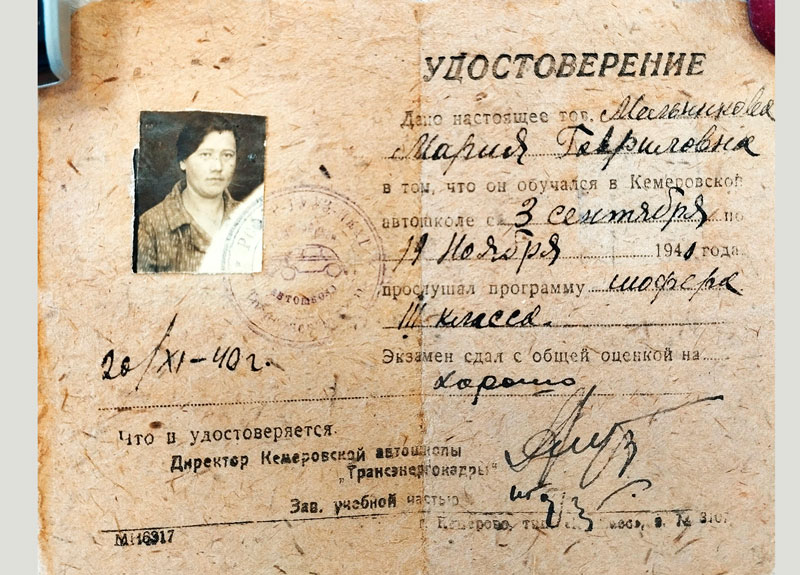 УДОСТОВЕРЕНИЕ
Дано настоящее тов. Мельникова
Мария Гавриловна
в том, что он обучался в Кемеровской
автошколе с 3 сентября по
19 Ноября 194 года.
прослушал программу шофера
III класса.
Экзамен сдал с общей оценкой на
хорошо
АВТОШКОЛА
20/XI-40 г.
Что и удостоверяется.
Директор Кемеровской автошколы
„Трансэнергокадры"
Зав. учебной частью
г. Кемерово,
МП6917